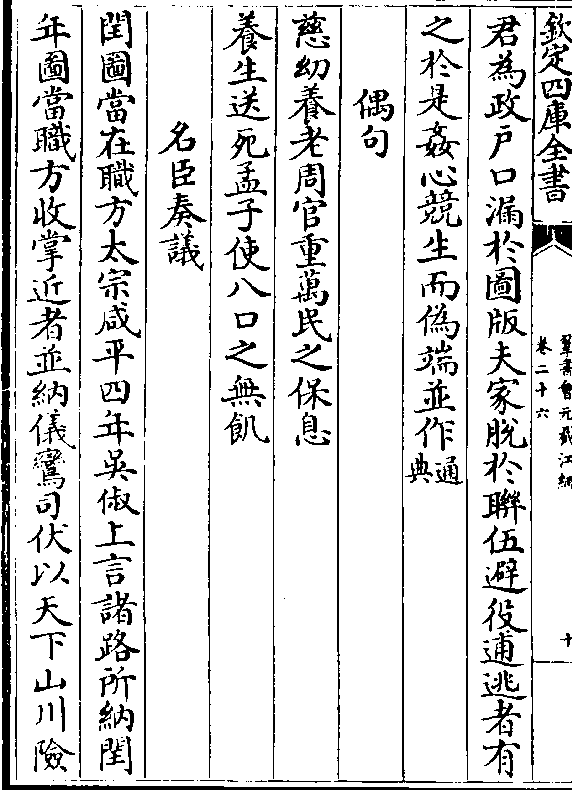 欽定四庫全書
羣書會元截江網
卷二十六
十
君為政户口漏於圖版夫家脫於聨伍避役逋逃者有
之於是姦心競生而偽端並作通典
偶句
慈幼養老周官重萬民之保息
養生送死孟子使八口之無飢
名臣奏議
閏圖當在職方太宗咸平四年吳俶上言諸路所納閏
年圖當職方收掌近者並納儀鸞司伏以天下山川險